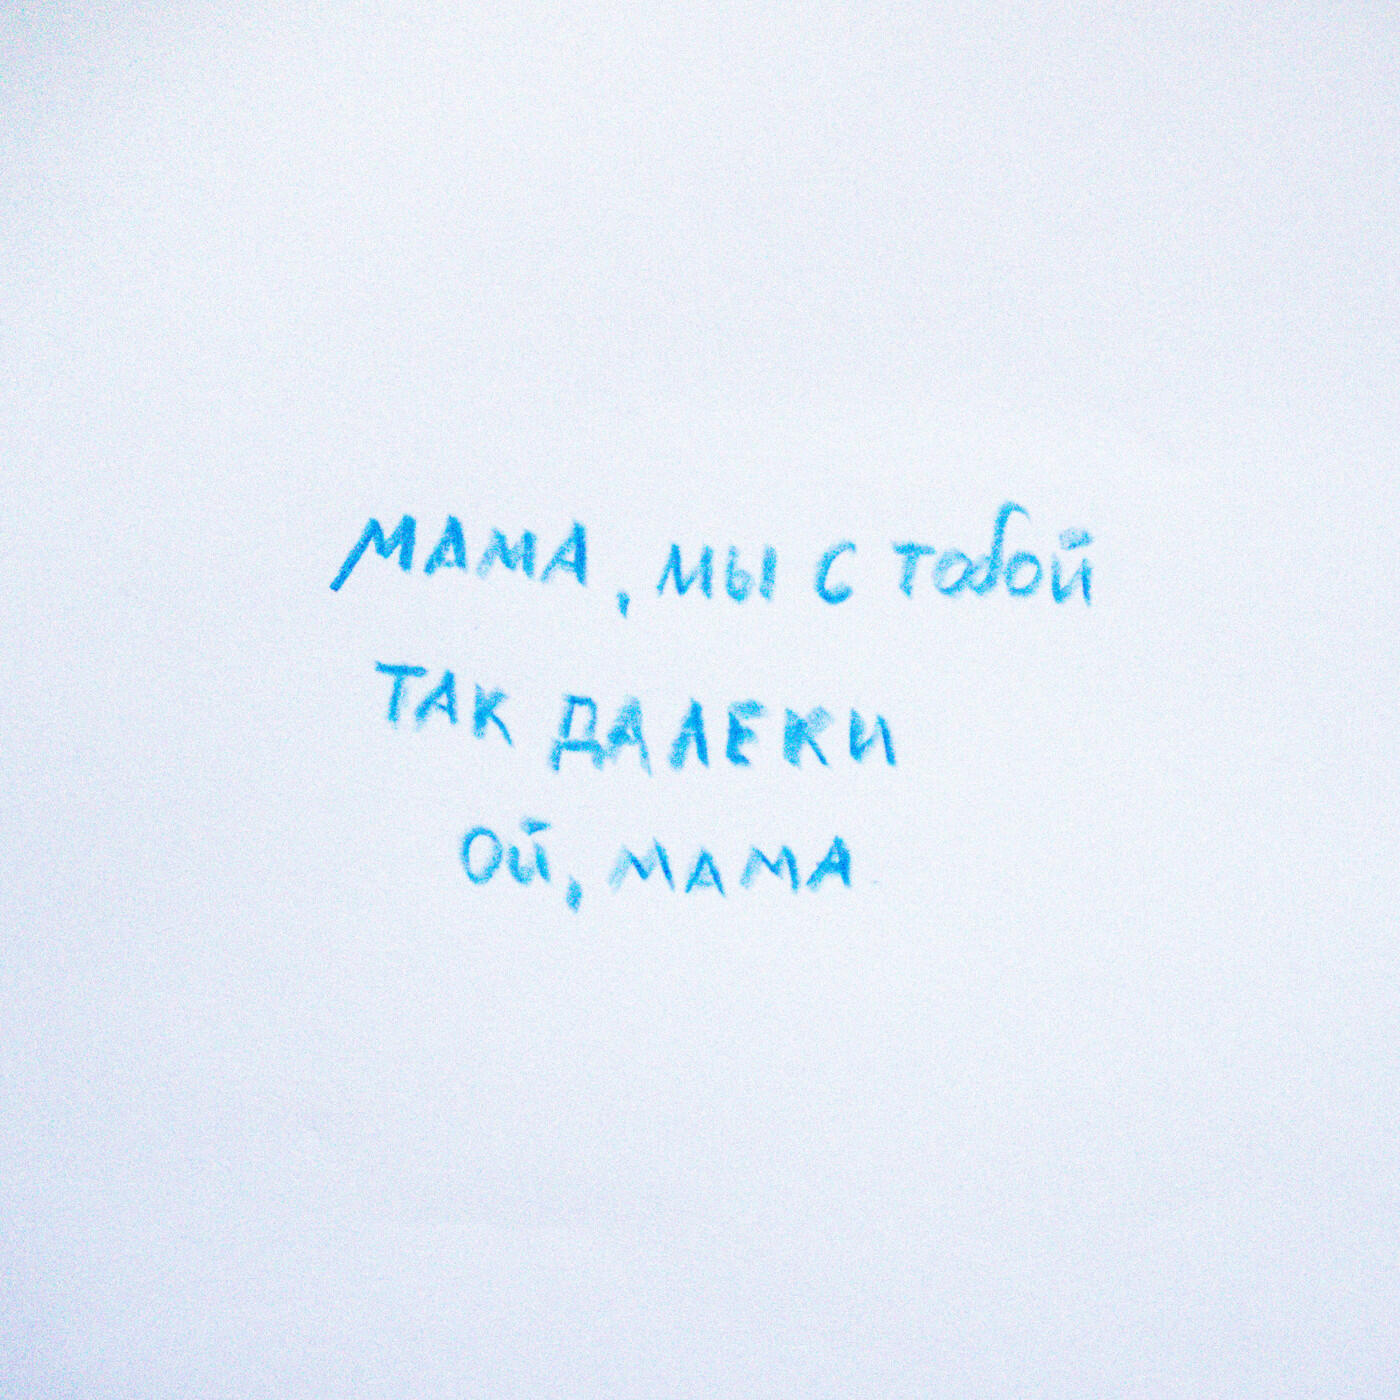 МАМА, МЫ С ТОбОЙ
ТАК ДАЛЕКИ
ОЙ, МАМА